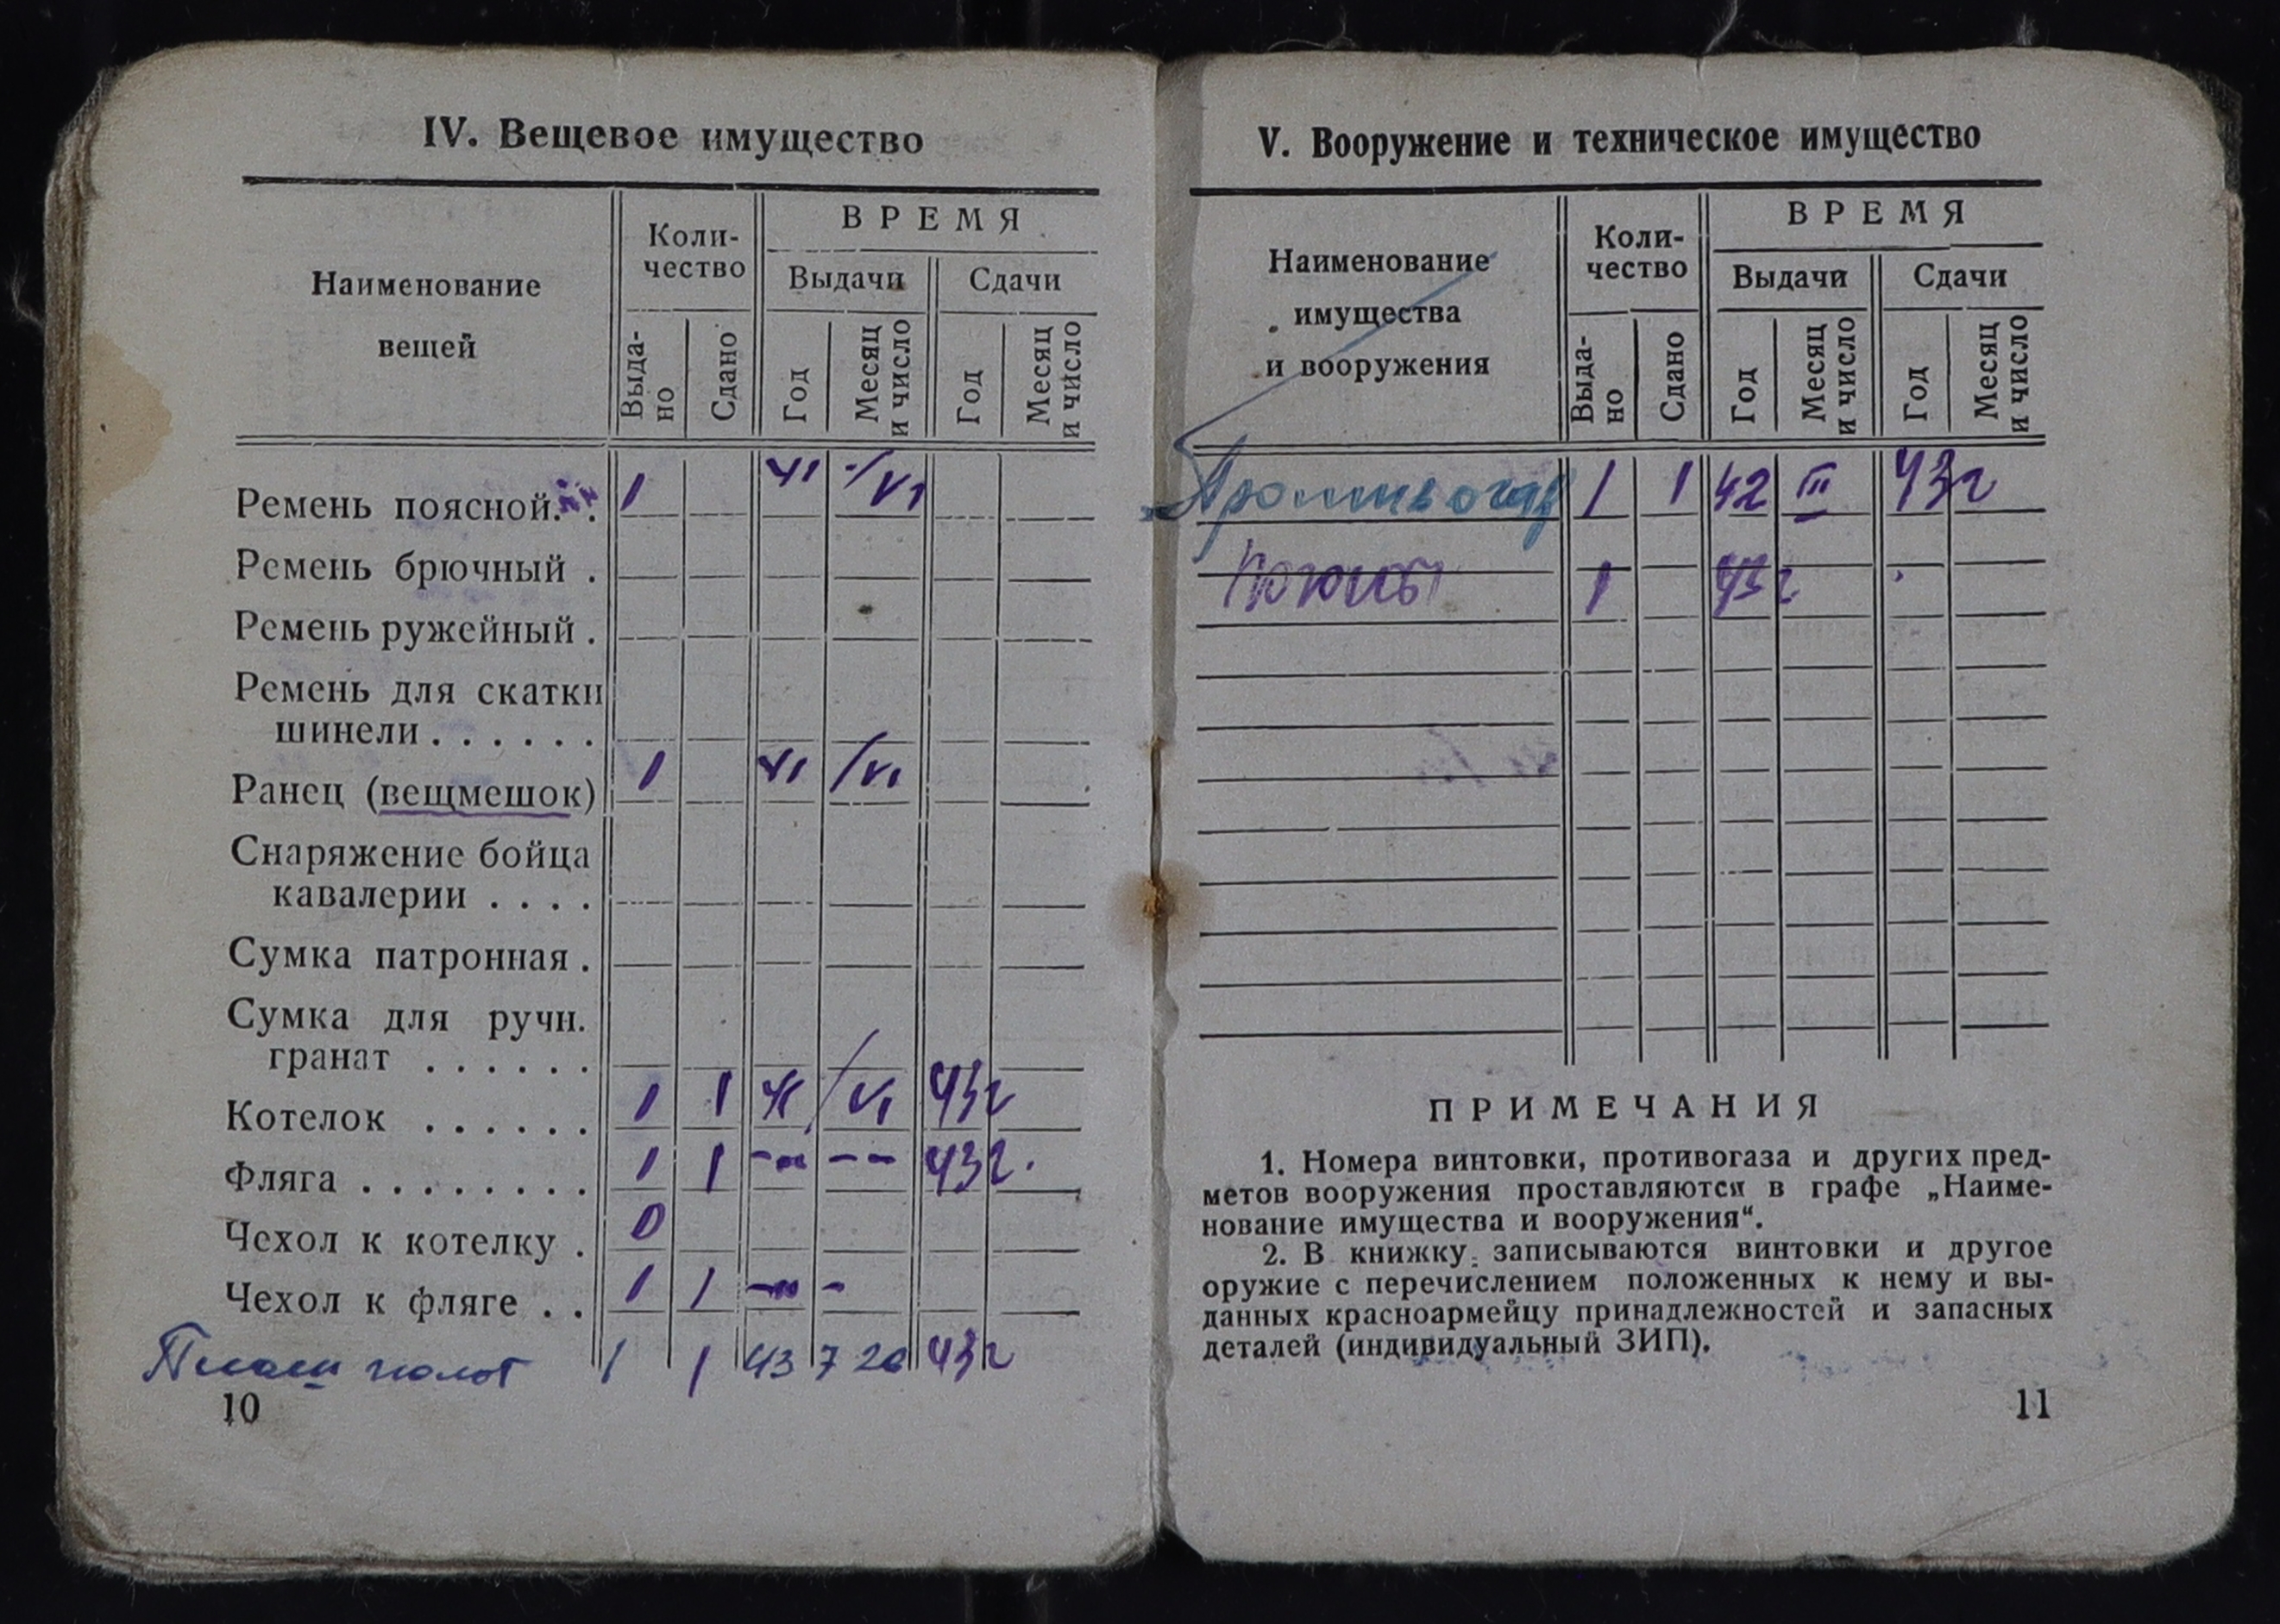 IV. Вещевое имущество
Наименование
вещей
Коли-
чество
ВРЕМЯ
Выдачи
Сдачи
Выда-
но
Сдано
Год
Месяц
и число
Год
Месяц
и число
Ремень поясной. . 1 41 /VI
Ремень брючный .
Ремень ружейный .
Ремень для скатки
шинели . . . . . .
Ранец (вещмешок) 1 41 /VI
Снаряжение бойца
кавалерии . . . .
Сумка патронная .
Сумка для ручн.
гранат . . . . . .
Котелок . . . . . . 1 1 41 /VI 43г
Фляга . . . . . . . . 1 1 -"- -- 43г.
Чехол к котелку . 0
Чехол к фляге . . 1 1 -"- -
Плащ полот 1 1 43 7 26 43г
10
V. Вооружение и техническое имущество
Наименование
имущества
и вооружения
Коли-
чество
ВРЕМЯ
Выдачи
Сдачи
Выда-
но
Сдано
Год
Месяц
и число
Год
Месяц
и число
Противогаз 1 1 42 III 43г
1 43г
ПРИМЕЧАНИЯ
1. Номера винтовки, противогаза и других пред-
метов вооружения проставляются в графе „Наиме-
нование имущества и вооружения“.
2. В книжку записываются винтовки и другое
оружие с перечислением положенных к нему и вы-
данных красноармейцу принадлежностей и запасных
деталей (индивидуальный ЗИП).
11